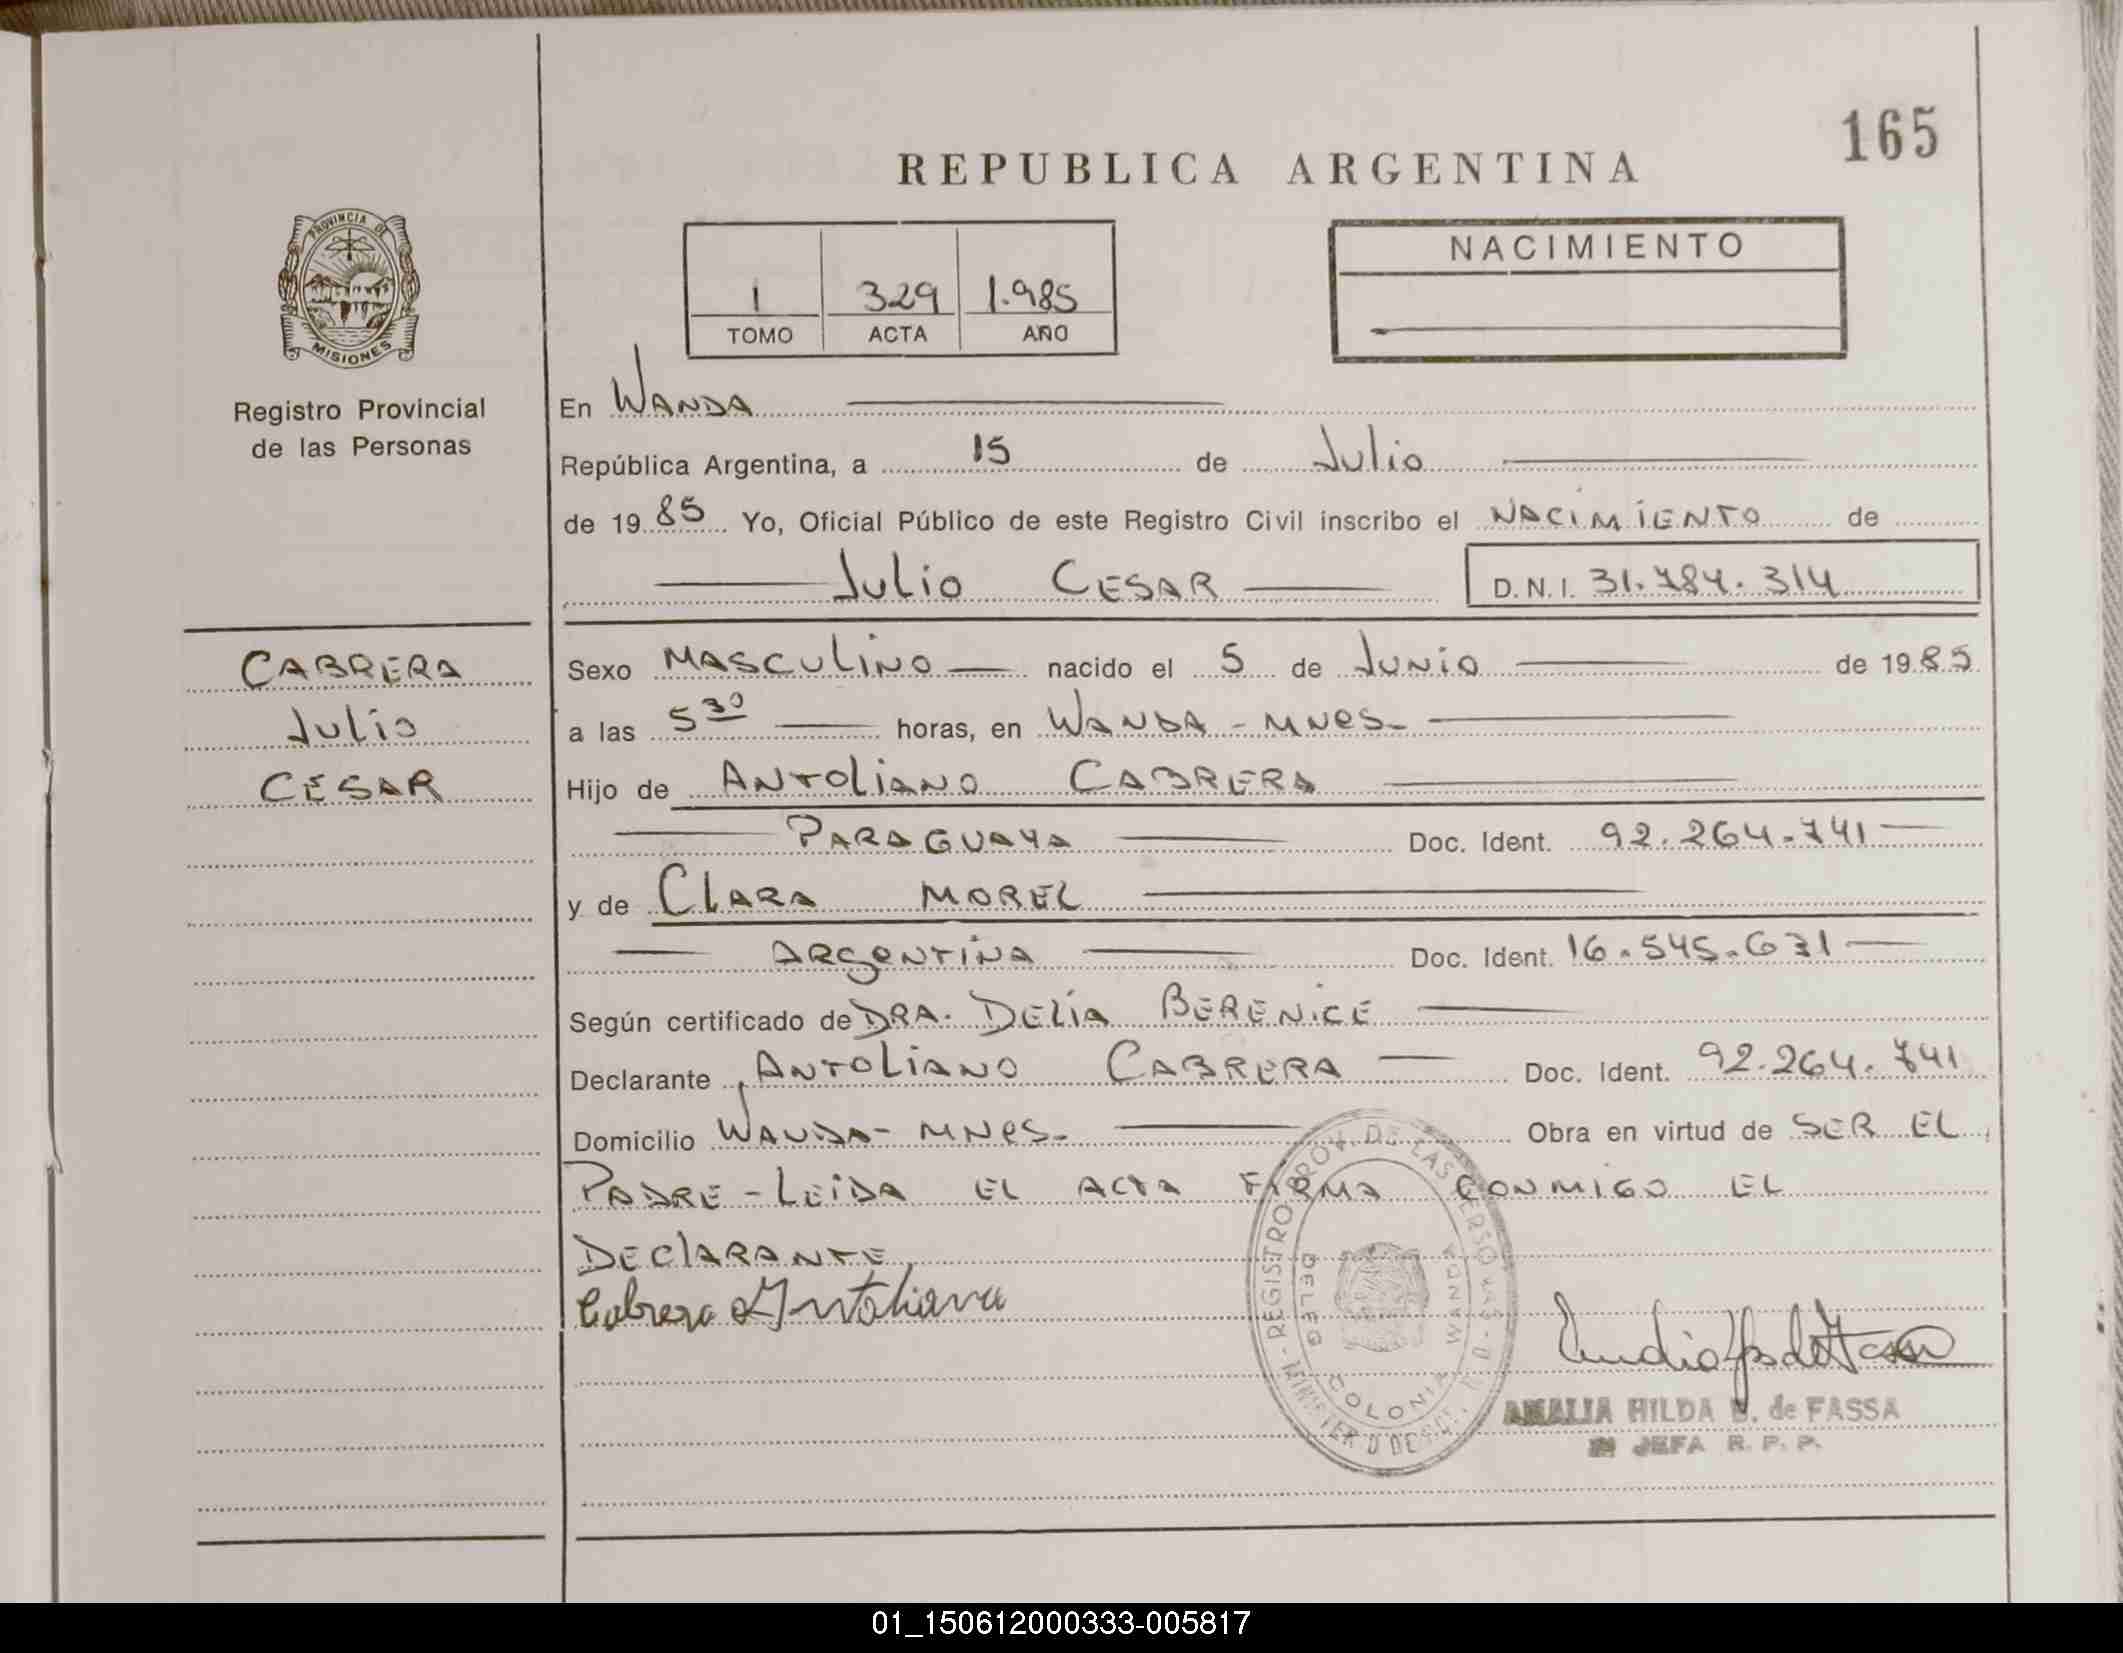 165
REPUBLICA ARGENTINA
PROVINCIA DE
MISIONES
Registro Provincial
de las Personas
1 329 1.985
TOMO ACTA AÑO
NACIMIENTO
En WANDA
República Argentina, a 15 de Julio
de 19 85 Yo, Oficial Público de este Registro Civil inscribo el NACIMIENTO de
Julio CESAR D.N.I. 31.784.314
CABRERA
Julio
CESAR
Sexo MASCULINO nacido el 5 de Junio de 19 85
a las 5 30 horas, en WANDA - MNES-
Hijo de ANTOLIANO CABRERA
PARAGUAYA Doc. Ident. 92.264.741
y de CLARA MOREL
ARGENTINA Doc. Ident. 16.545.631
Según certificado de DRA. DELIA BERENICE
Declarante ANTOLIANO CABRERA Doc. Ident. 92.264.741
Domicilio WANDA- MNES- Obra en virtud de SER EL
PADRE - LEIDA EL ACTA FIRMA CONMIGO EL
DECLARANTE
Cabrera Antoliano
REGISTRO PROV. DE LAS PERSONAS
DELEG COLONIA WANDA
AMALIA HILDA de FASSA
JEFA R. P. P.
01_150612000333-005817